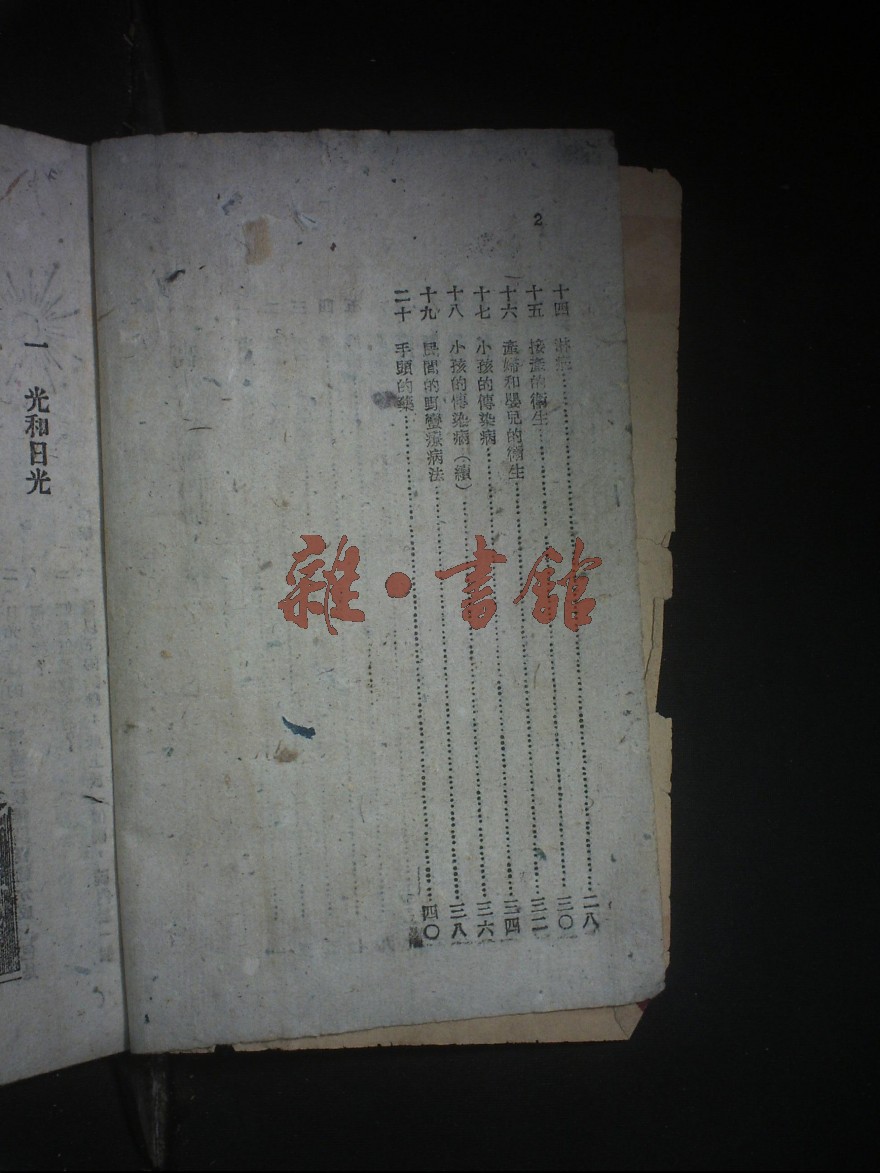 2
十四 淋病 二八
十五 接產的衛生 三〇
十六 產婦和嬰兒的衛生 三二
十七 小孩的傳染病 三四
十八 小孩的傳染病（續） 三六
十九 民間的野蠻療病法 三八
二十 手頭的藥 四〇
雜·書館
一 光和日光